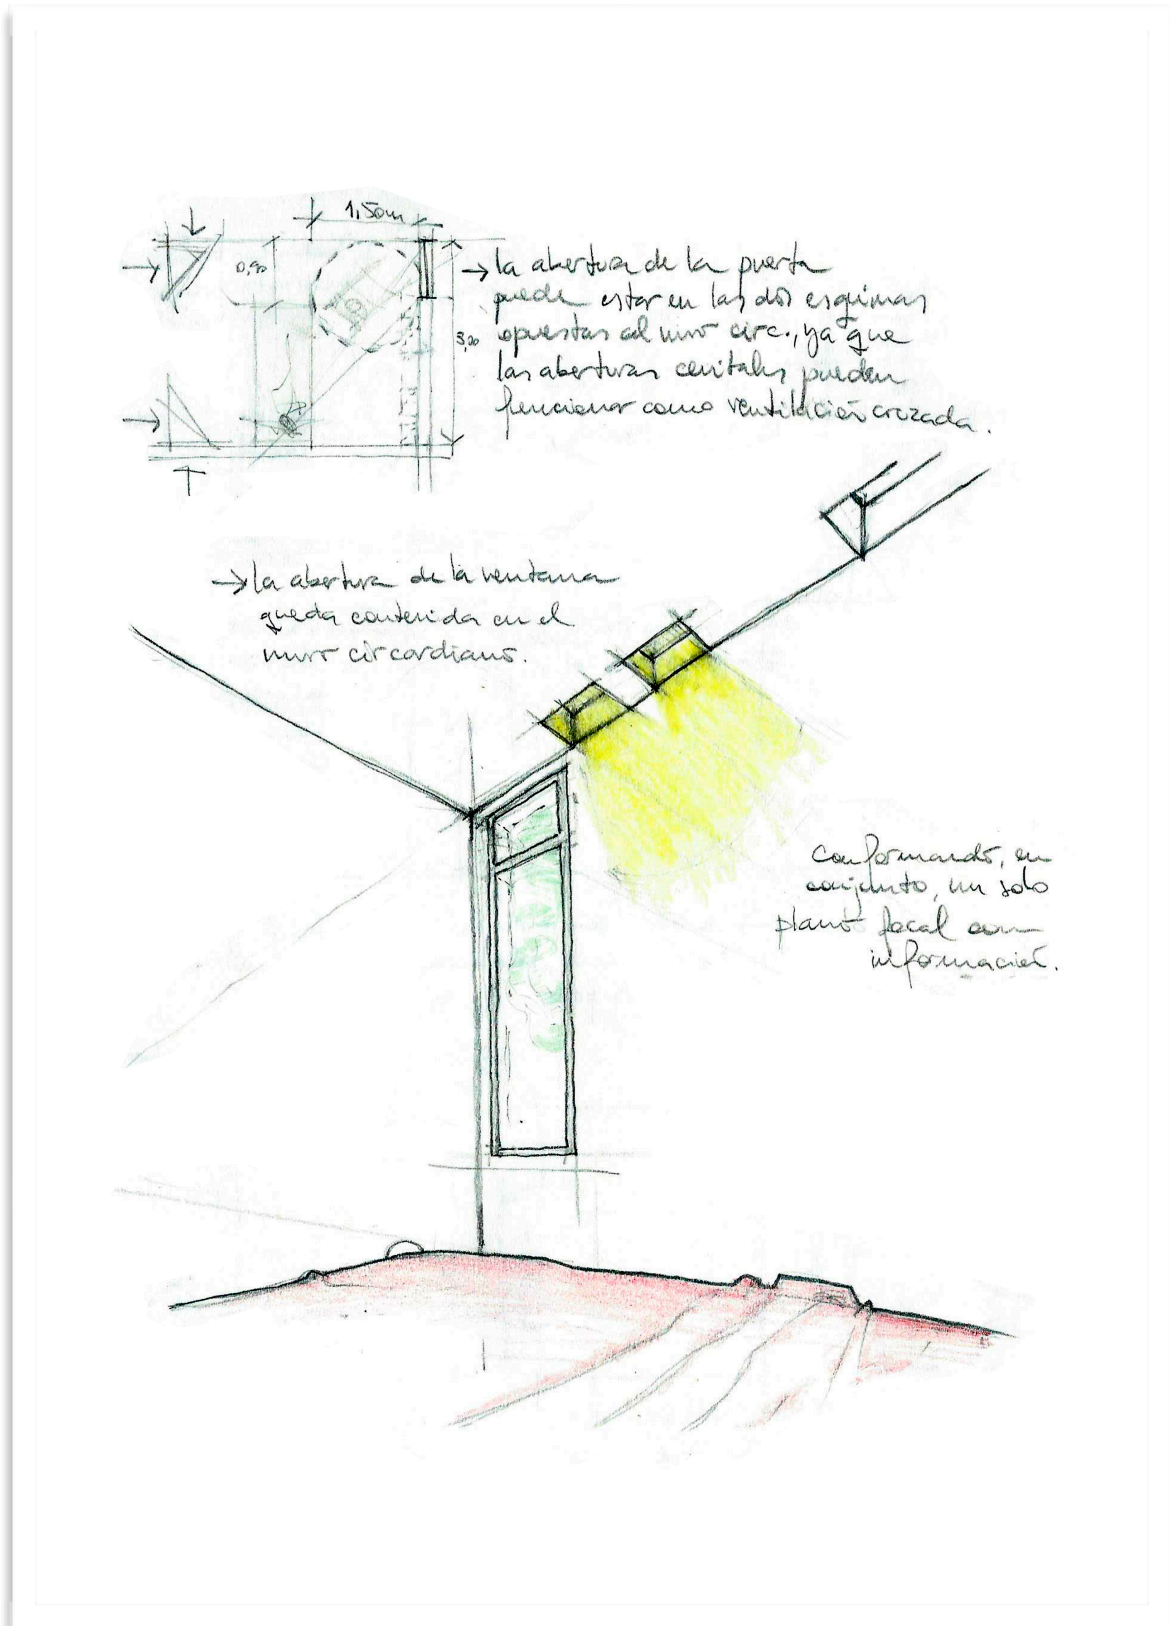 1,50m
0,90
3,20
→ la abertura de la puerta
puede estar en las dos esquinas
opuestas al muro circ., ya que
las aberturas cenitales pueden
funcionar como ventilación cruzada.
→ la abertura de la ventana
queda contenida en el
muro circardiano.
Conformando, en
conjunto, un solo
plano focal con
información.